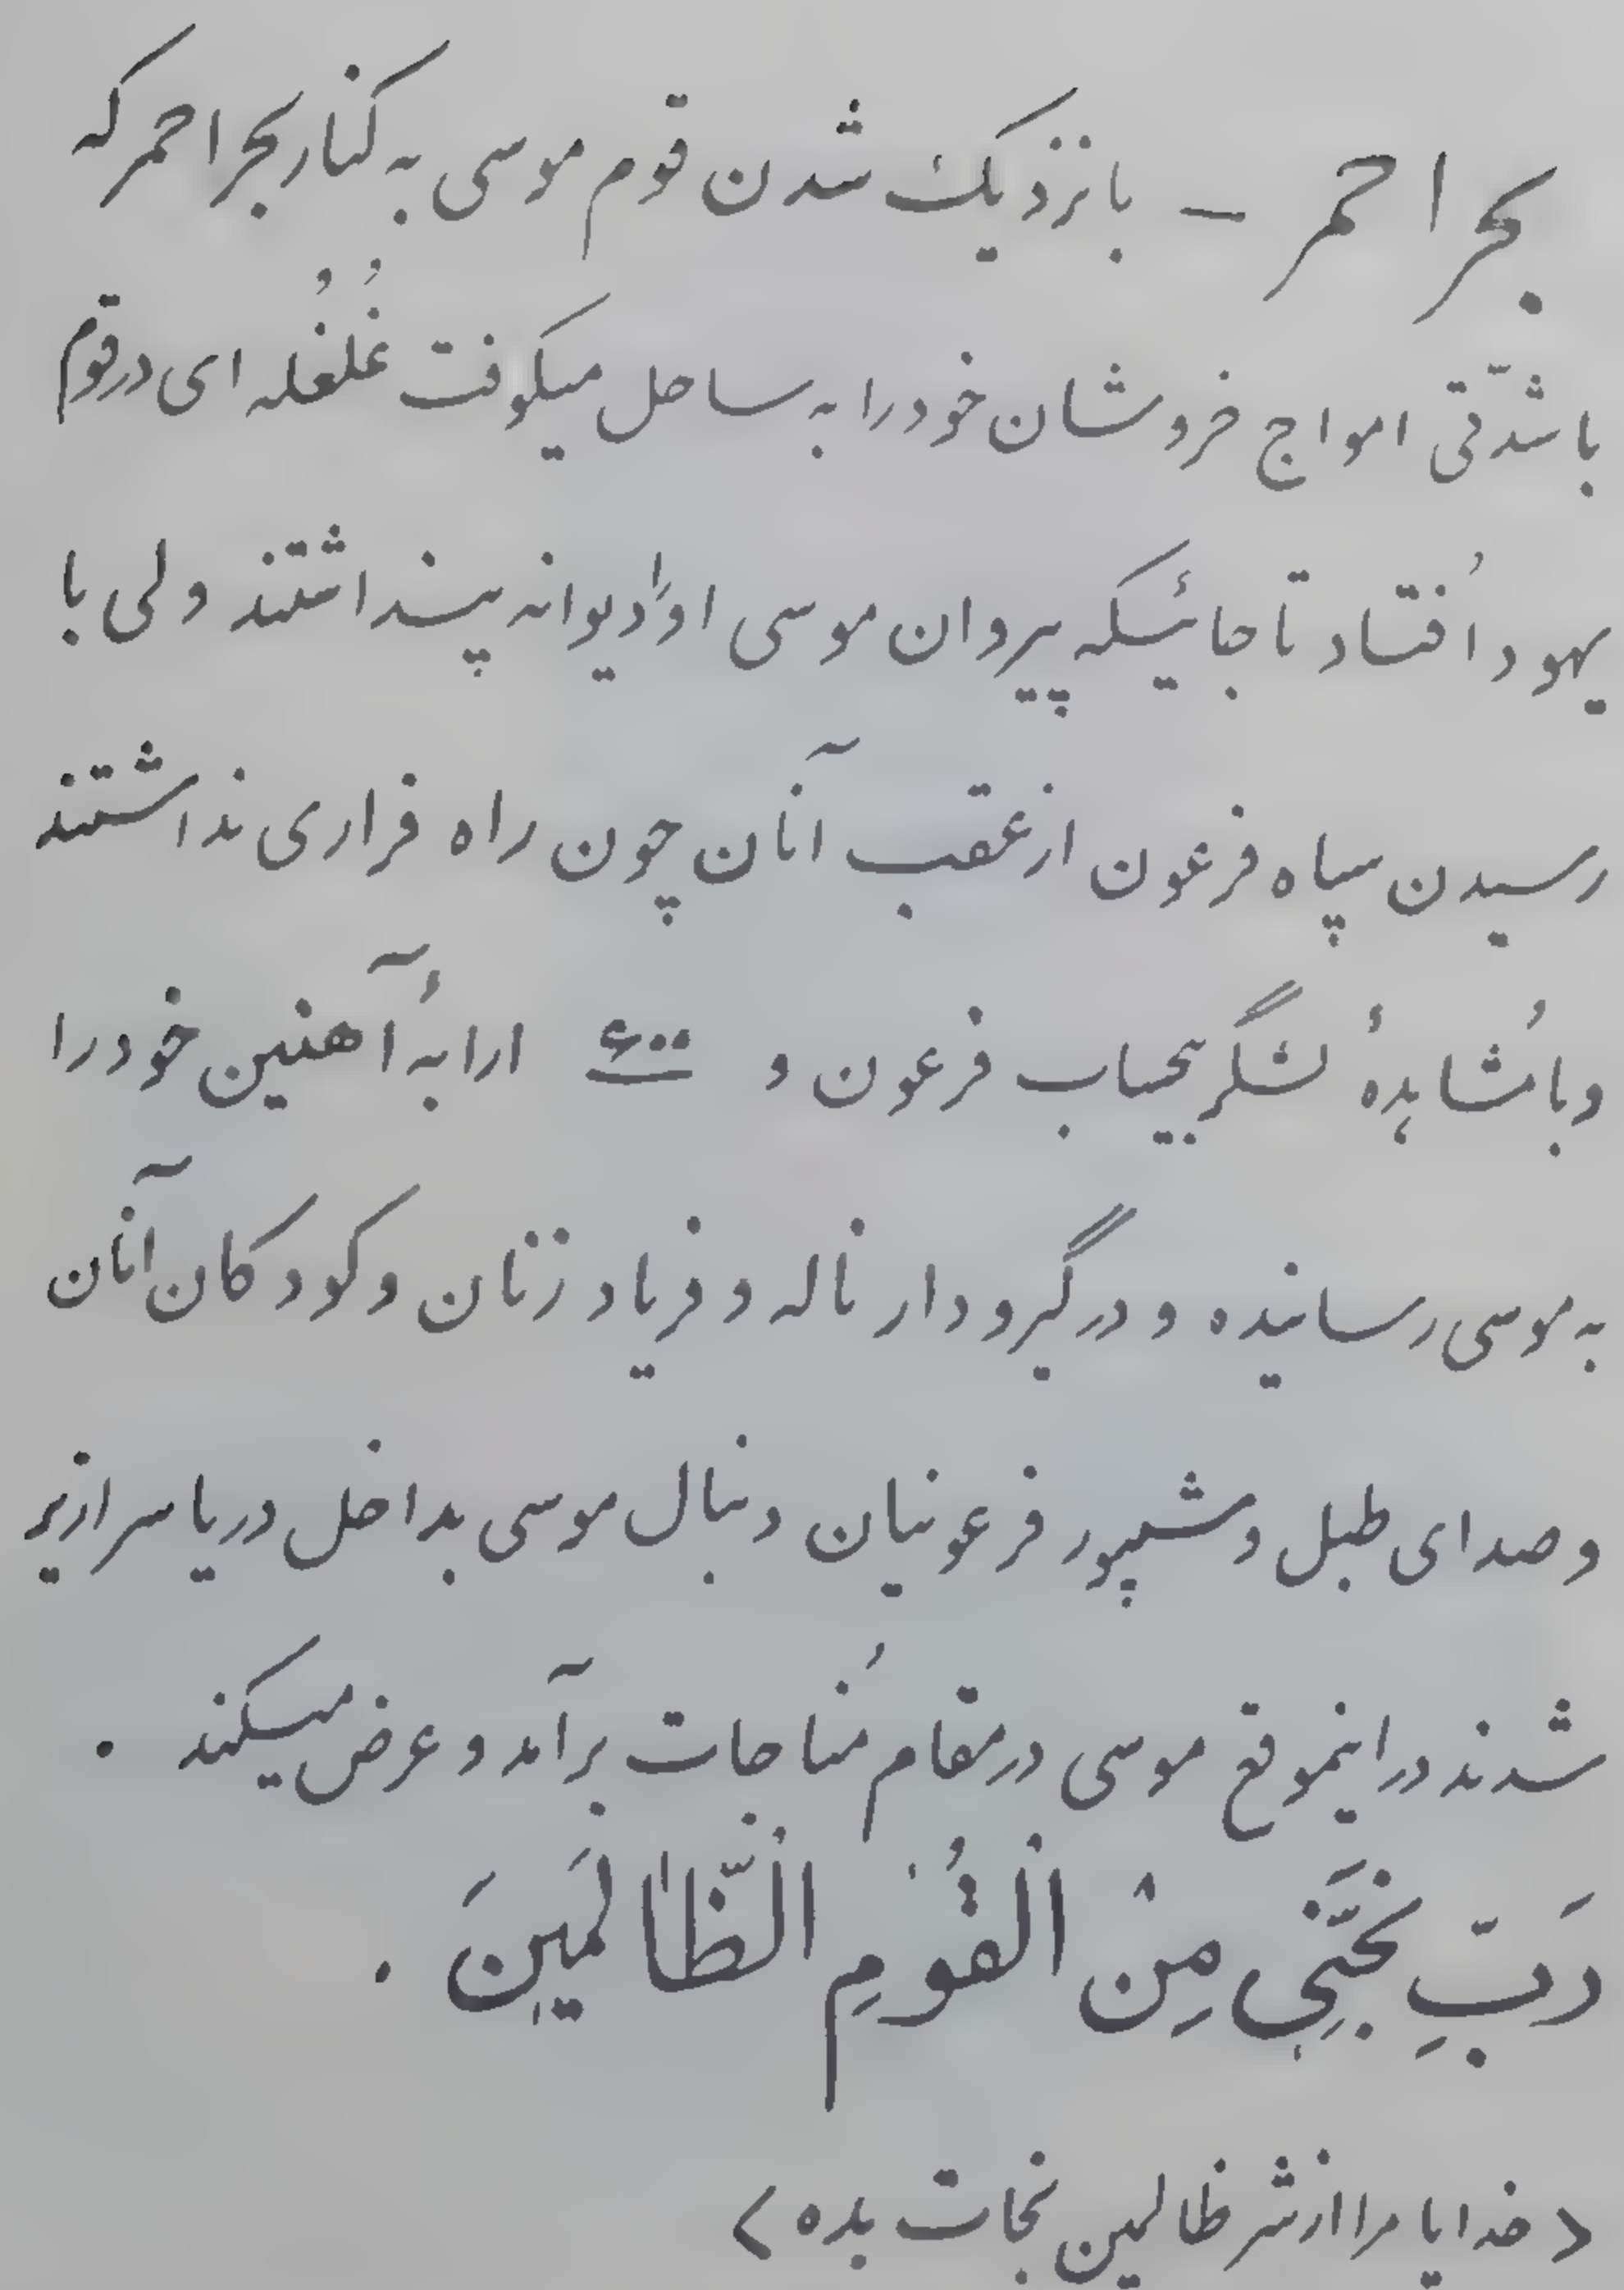 بحر احمر – با نزدیک شدن قوم موسی به کنار بحر احمر که
با شدّتی امواج خروشان خود را به ساحل میکوفت غُلغُله ای در قوم
یهود اُفتاد تا جائیکه پیروان موسی او را دیوانه پنداشتند ولی با
رسیدن سپاه فرعون از عقب آنان چون راه فراری نداشتند
و با مُشاهدهٔ لشگر بیحساب فرعون و ۶۰۰ ارابهٔ آهنین خود را
به موسی رسانیده و در گیرودار ناله و فریاد زنان و کودکان آنان
و صدای طبل و شیپور فرعونیان دنبال موسی بداخل دریا سرازیر
شدند در اینموقع موسی در مقام مُناجات برآمد و عرض میکند .
رَبِّ نَجِّنِی مِنْ الْقُوْمِ الْظّالَمینَ .
< خدایا مرا از شر ظالمین نجات بده >